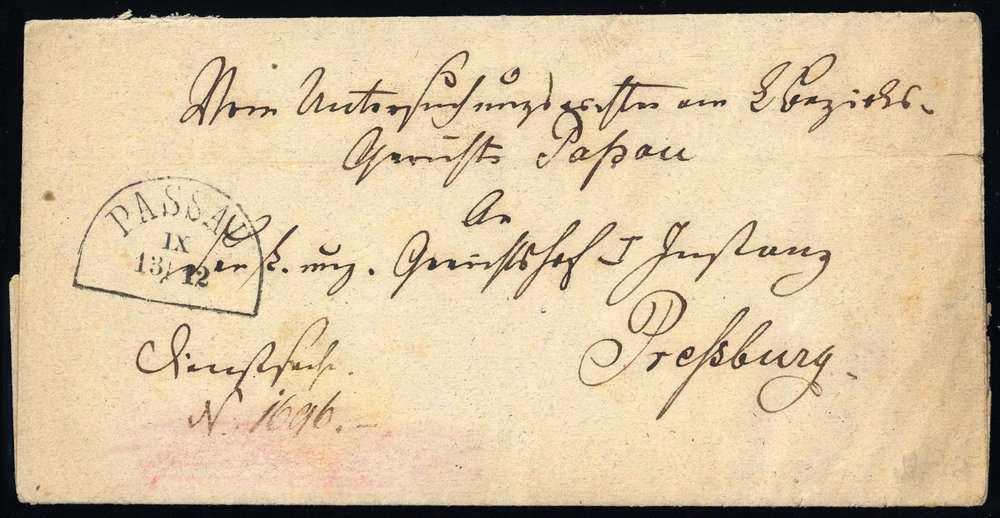 Vom Untersuchungsrichter am k. Bezirks-
Gerichte Paßau
An
PASSAU
IX
13/12
den k. ung. Gerichtshof I Instanz
Preßburg.
Dienstsache.
N. 1696.